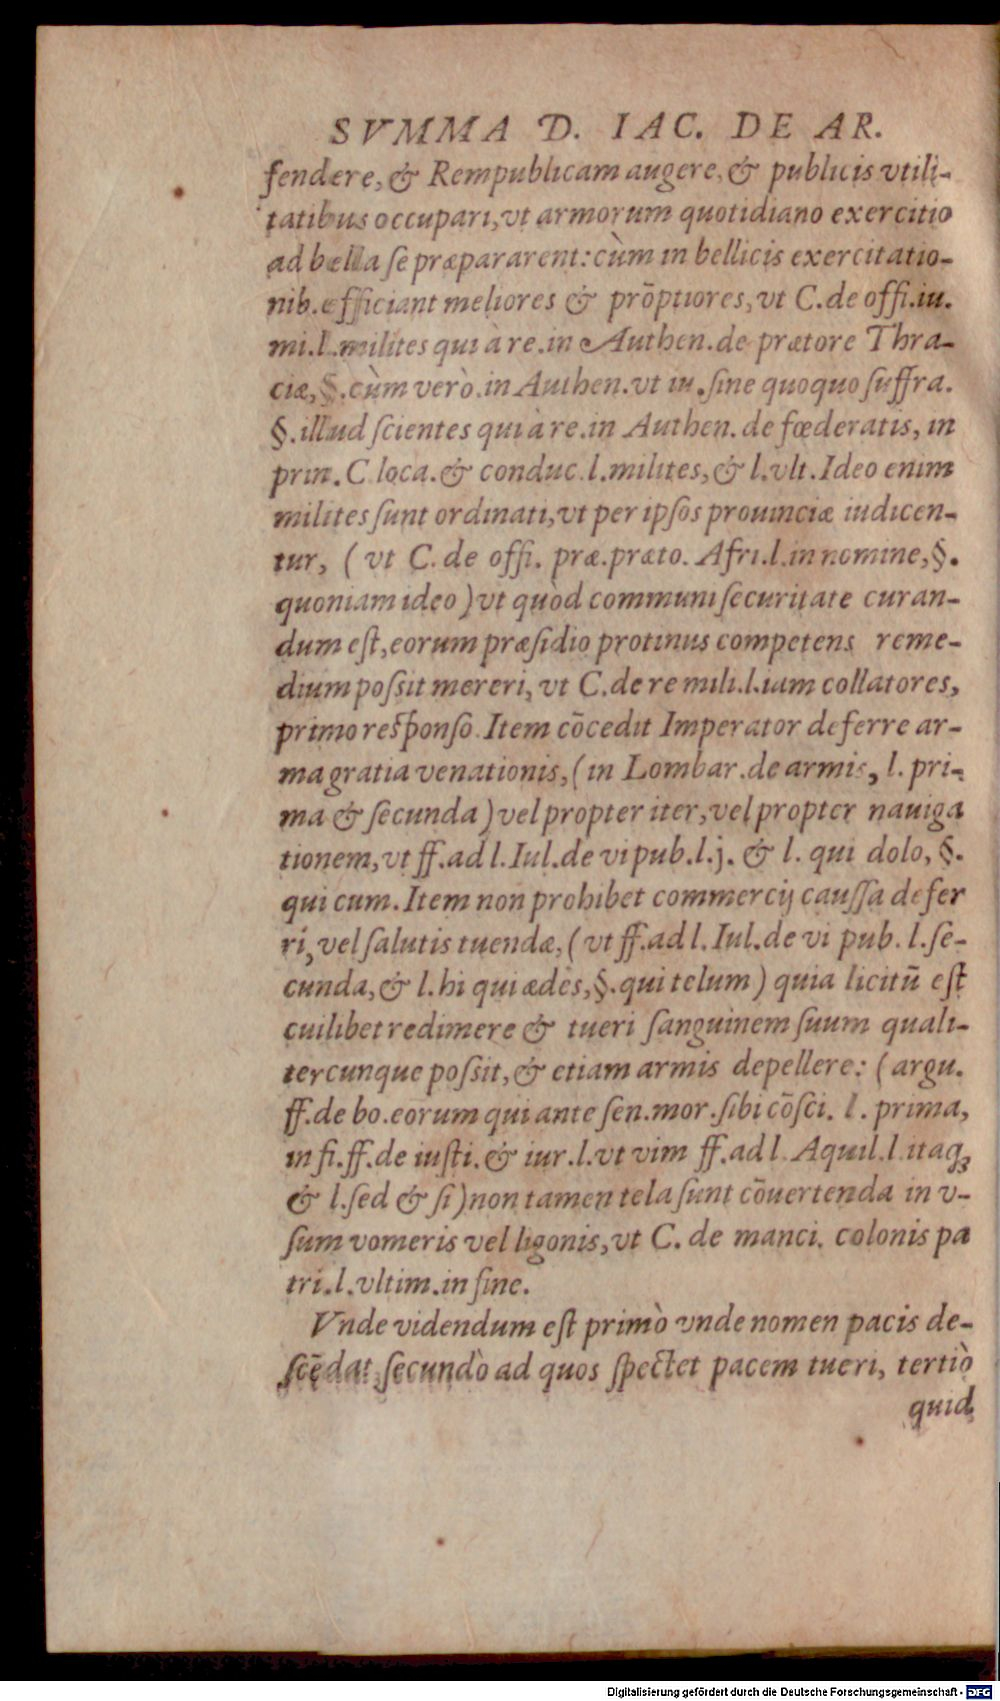 SVMMA D. IAC. DE AR.
fendere, & Rempublicam augere, & publicis vtili-
tatibus occupari, vt armorum quotidiano exercitio
ad bella ſe præpararent: cùm in bellicis exercitatio-
nib. efficiant meliores & prōptiores, vt C. de offi. iu.
mi. l. milites qui à re. in Authen. de prætore Thra-
ciæ, §. cùm verò. in Authen. vt iu. ſine quoquo ſuffra.
§. illud ſcientes qui à re. in Authen. de fœderatis, in
prin. C loca. & conduc. l. milites, & l. vlt. Ideo enim
milites ſunt ordinati, vt per ipſos prouinciæ iudicen-
tur, ( vt C. de offi. præ. præto. Afri. l. in nomine, §.
quoniam ideo ) vt quòd communi ſecuritate curan-
dum eſt, eorum præſidio protinus competens reme-
dium poſsit mereri, vt C. de re mili. l. iam collatores,
primo reſponſo. Item cōcedit Imperator deferre ar-
ma gratia venationis, ( in Lombar. de armis, l. pri-
ma & ſecunda ) vel propter iter, vel propter nauiga
tionem, vt ff. ad l. Iul. de vi pub. l. j. & l. qui dolo, §.
qui cum. Item non prohibet commercij cauſſa defer
ri, vel ſalutis tuendæ, ( vt ff. ad l. Iul. de vi pub. l. ſe-
cunda, & l. hi qui ædes, §. qui telum ) quia licitū eſt
cuilibet redimere & tueri ſanguinem ſuum quali-
tercunque poſsit, & etiam armis depellere: ( argu.
ff. de bo. eorum qui ante ſen. mor. ſibi cōſci. l. prima,
in fi. ff. de iuſti. & iur. l. vt vim ff. ad l. Aquil. l. itaq;
& l. ſed & ſi ) non tamen tela ſunt cōuertenda in v-
ſum vomeris vel ligonis, vt C. de manci. colonis pa
tri. l. vltim. in fine.
Vnde videndum eſt primò vnde nomen pacis de-
ſcēdat, ſecundò ad quos ſpectet pacem tueri, tertiò
quid
Digitalisierung gefördert durch die Deutsche Forschungsgemeinschaft - DFG